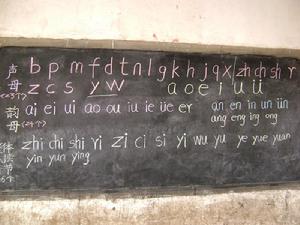 声母 b p m f d t n l g k h j q x zh ch sh r
z c s y w a o e i u ü
韵母 ai ei ui ao ou iu ie üe er an en in un ün
(24个) ang eng ing ong
体读节 zhi chi shi ri zi ci si yi wu yu ye yue yuan
yin yun ying